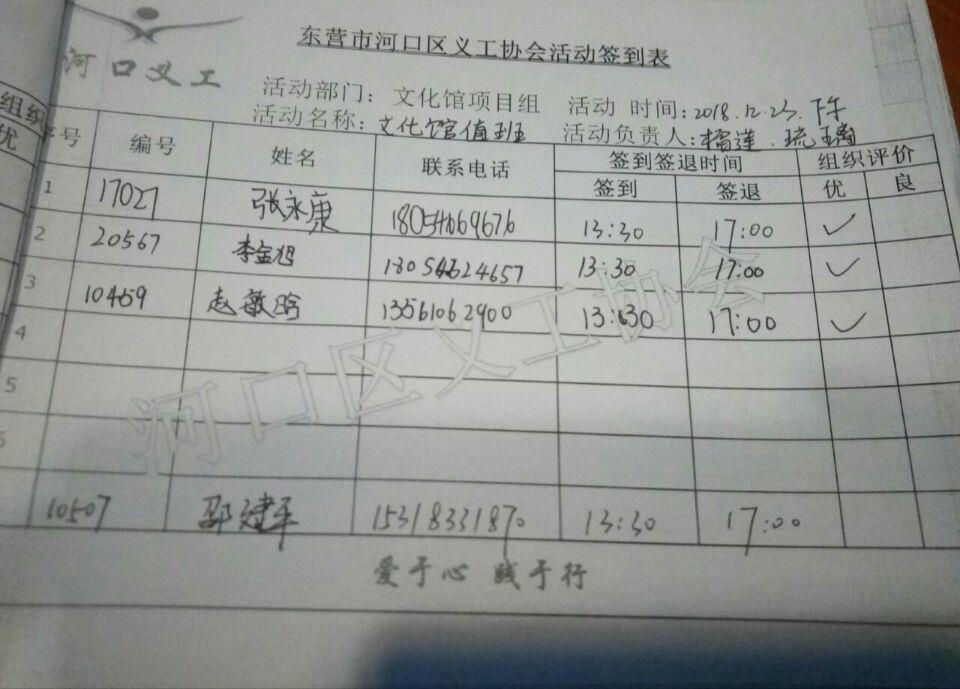 河口义工
东营市河口区义工协会活动签到表
活动部门：文化馆项目组 活动 时间：2018.12.23.下午
活动名称：文化馆值班 活动负责人：榴莲.琉璃
组织
优
序号 编号 姓名 联系电话 签到签退时间 组织评价
签到 签退 优 良
1 17027 张永康 18054669676 13:30 17:00 ✓
2 20567 李金旭 18054624657 13:30 17:00 ✓
3 10459 赵敏晗 13561062900 13:30 17:00 ✓
4
5
6
10507 邵建军 15318331870 13:30 17:00
河口区义工协会
爱于心 践于行